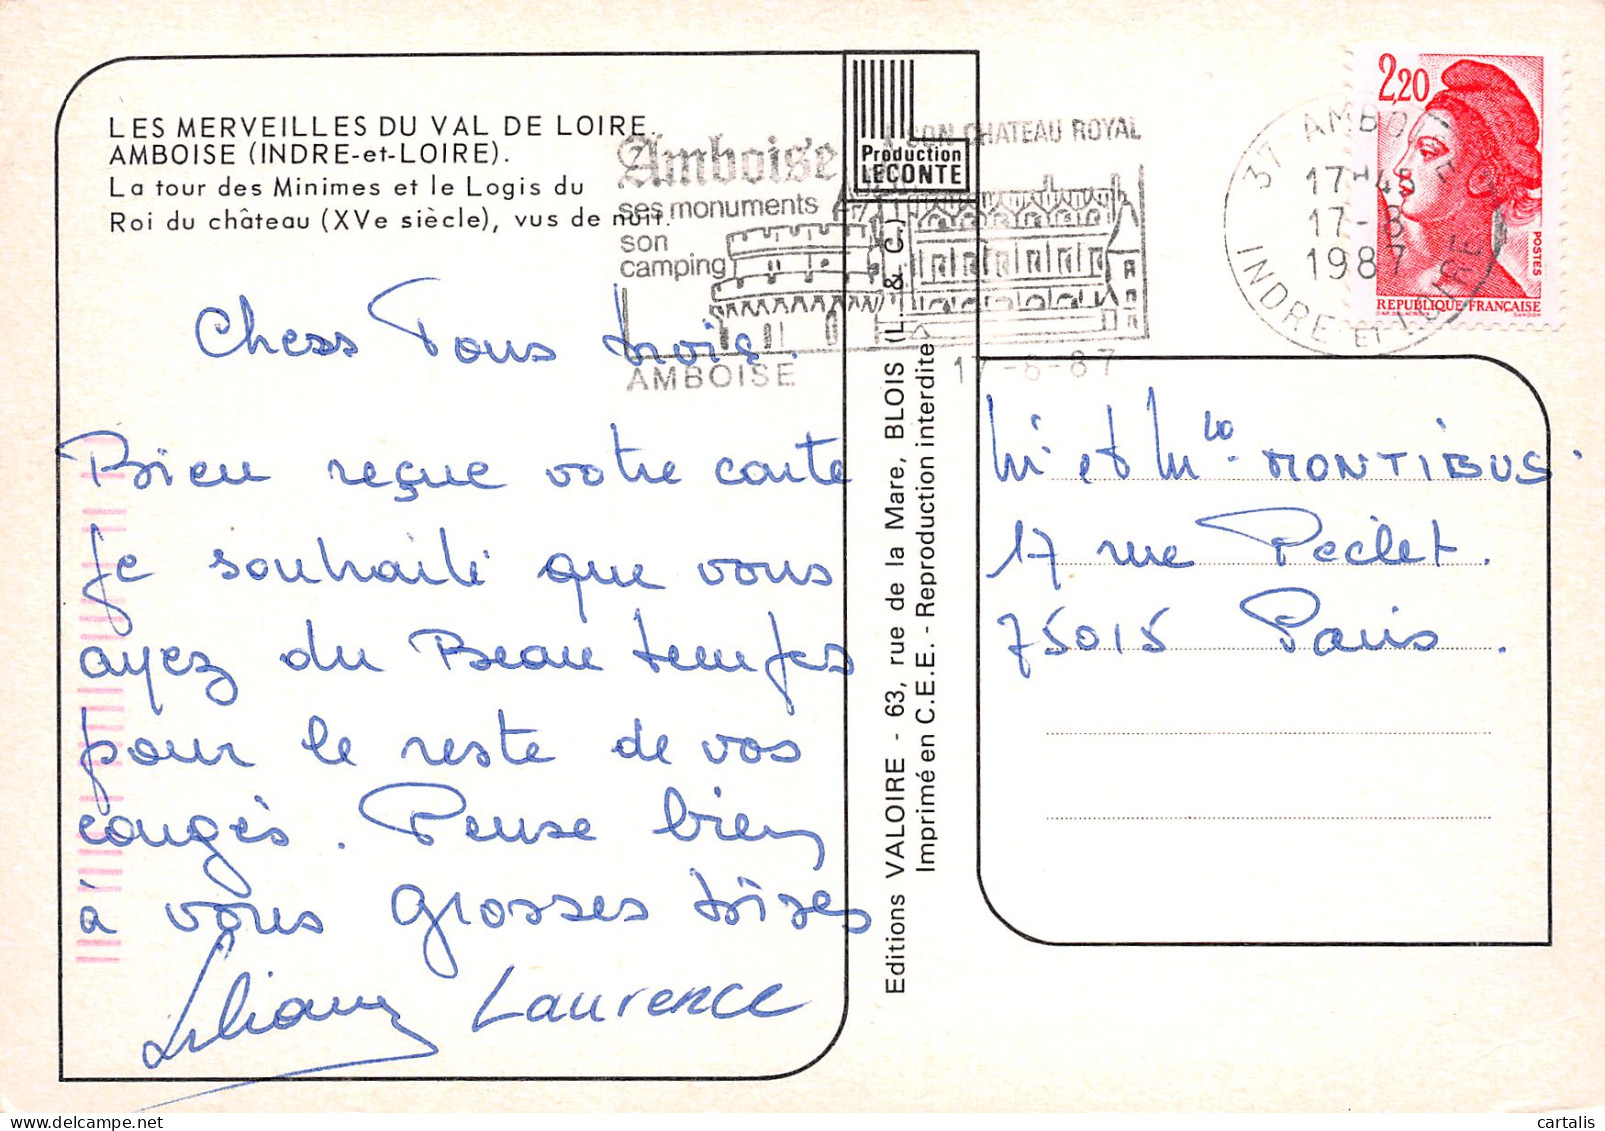 LES MERVEILLES DU VAL DE LOIRE.
AMBOISE (INDRE-et-LOIRE).
La tour des Minimes et le Logis du
Roi du château (XVe siècle), vus de nuit.
Chess Tous trois.
Bien reçue votre carte
Je souhaite que vous
ayez du Beau temps
pour le reste de vos
congés. Pense bien
à vous Grosses bises
Liliane Laurence
Amboise
ses monuments
son
camping
SON CHATEAU ROYAL
AMBOISE
17-8-87
Production
LECONTE
Editions VALOIRE - 63, rue de la Mare, BLOIS (L. & C.)
Imprimé en C.E.E. - Reproduction interdite
2,20
POSTES
REPUBLIQUE FRANÇAISE
37 AMBOISE
17H45
17-8
1987
INDRE ET LOIRE
Mr et Mme MONTIBUS.
17 rue Peclet.
75015 Paris.
cartalis
delcampe.net